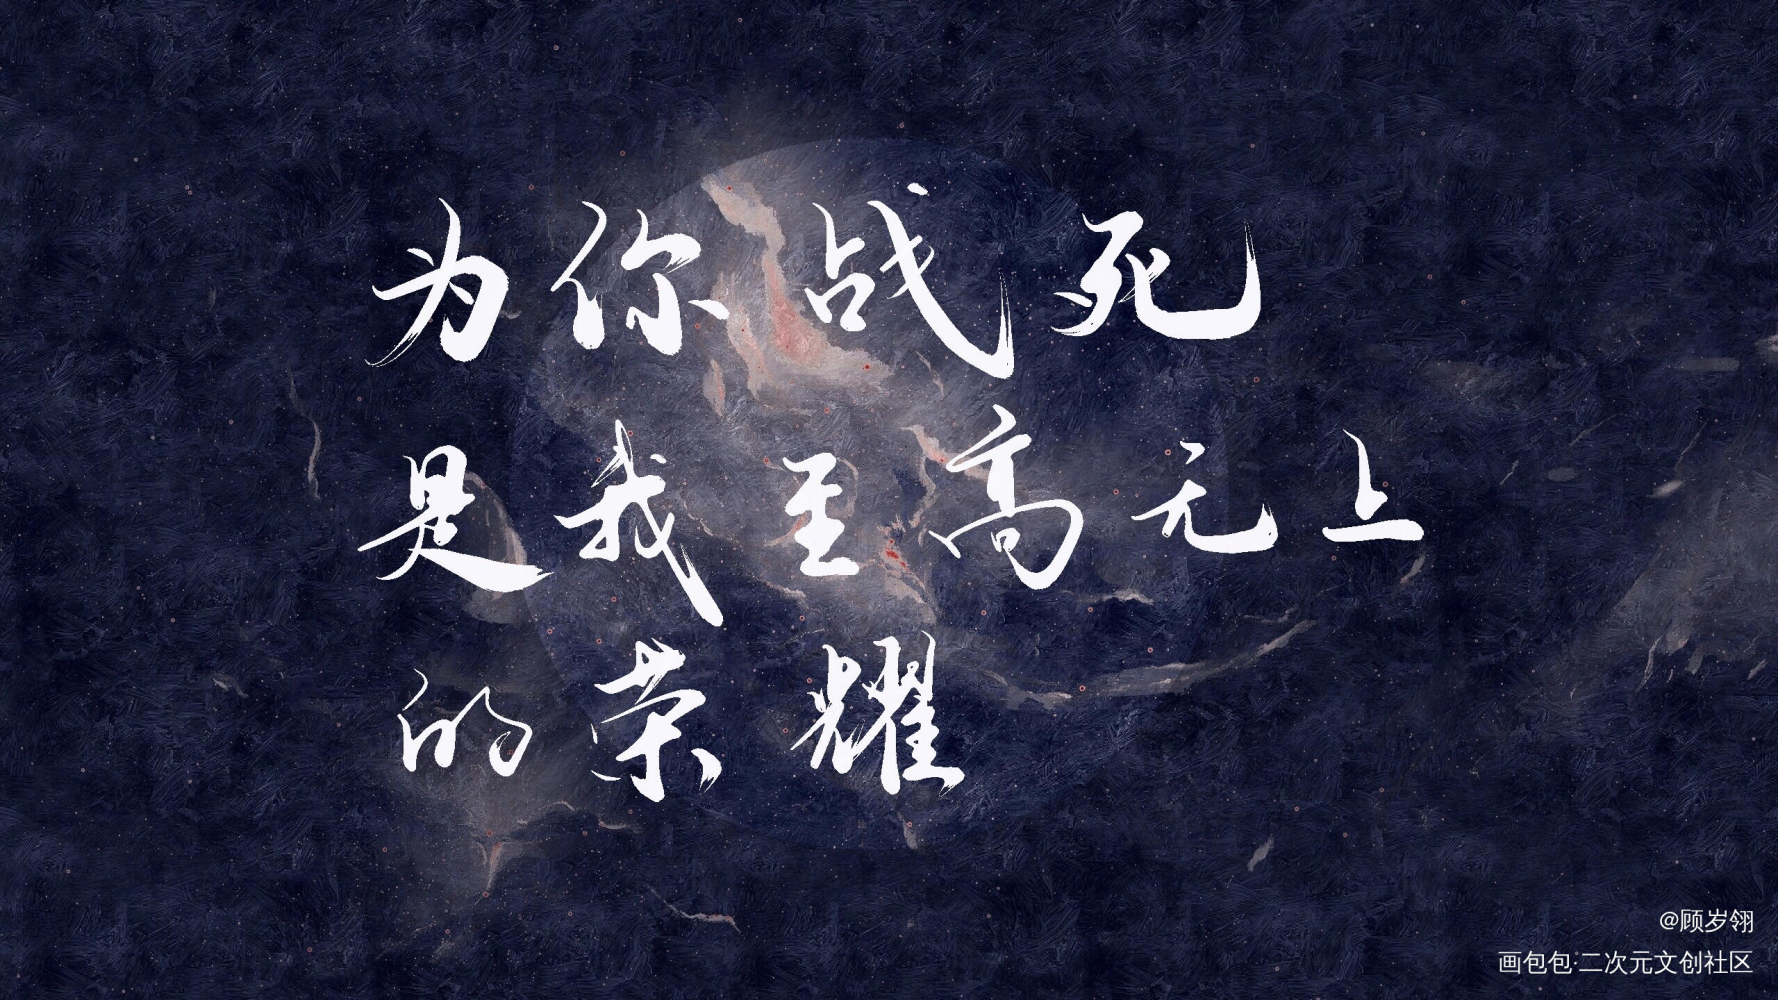 为你战死
是我至高无上
的荣耀
@顾岁翎
画包包·二次元文创社区